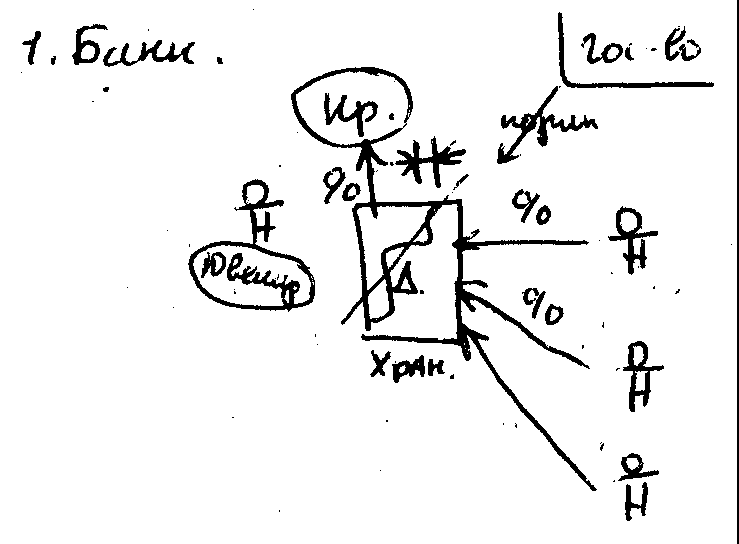 1. Банк.
гос-во
Кр.
%
%
Ювелир
Δ.
%
Хран.